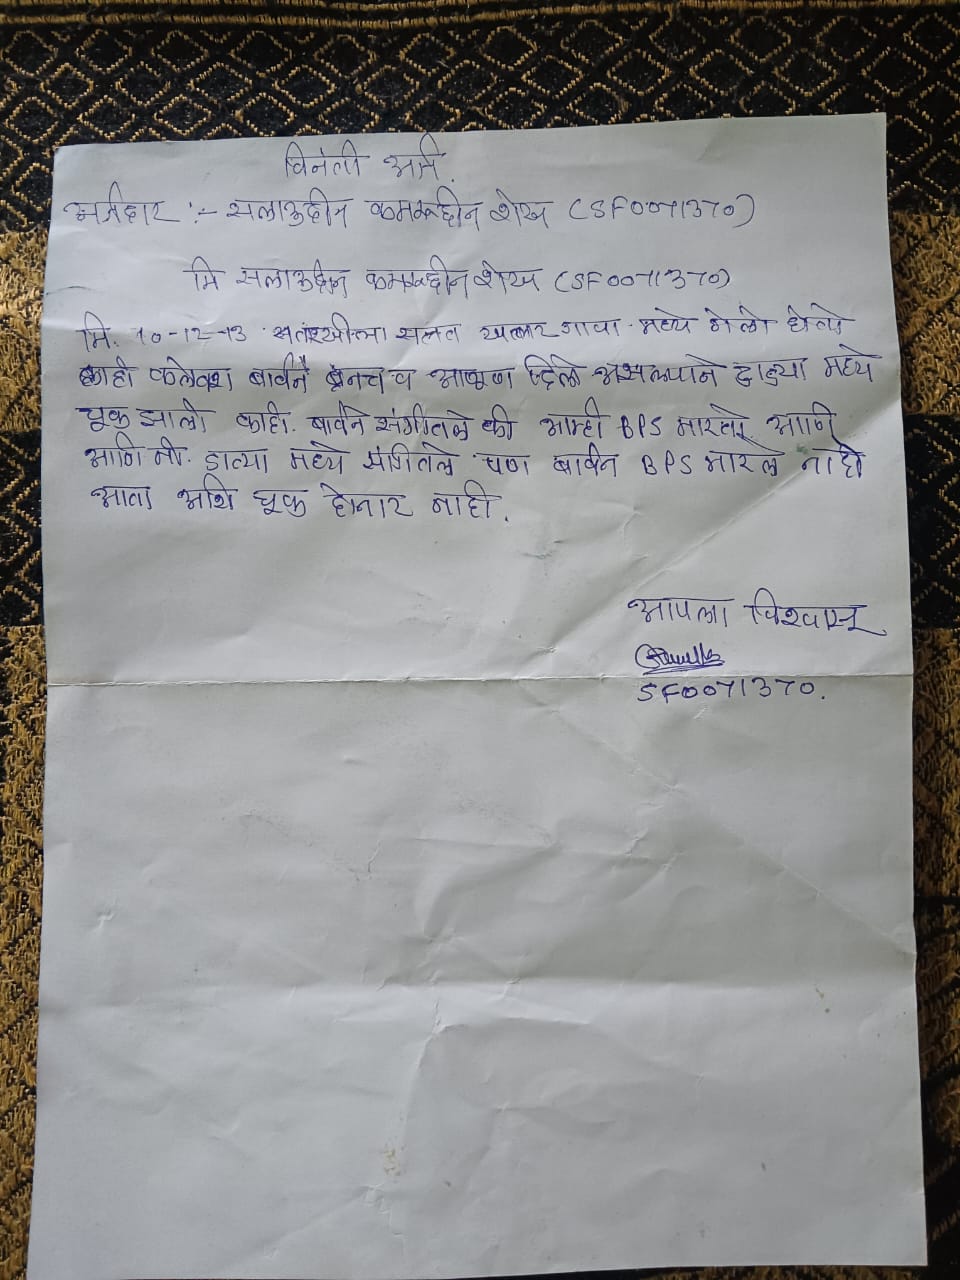 विनंती अर्ज.
अर्जदार :- सलाऊद्दीन कमरूद्दीन शेख (SF0071370)
मि सलाऊद्दीन कमरूद्दीन शेख (SF0071370)
मि. 10-12-13 सलग गावा मध्ये गेलो होतो
काही कलेक्शन बार्वने व आणून दिले असल्याने डाट्या मध्ये
चूक झाली काही. बार्वने संगीतले की आम्ही BPS मारतो आणि
आणि मी. डाट्या मध्ये संगितले पण बार्वन BPS मारले नाही
आता अशि चूक होनार नाही.
आपला विश्वासू
SF0071370.